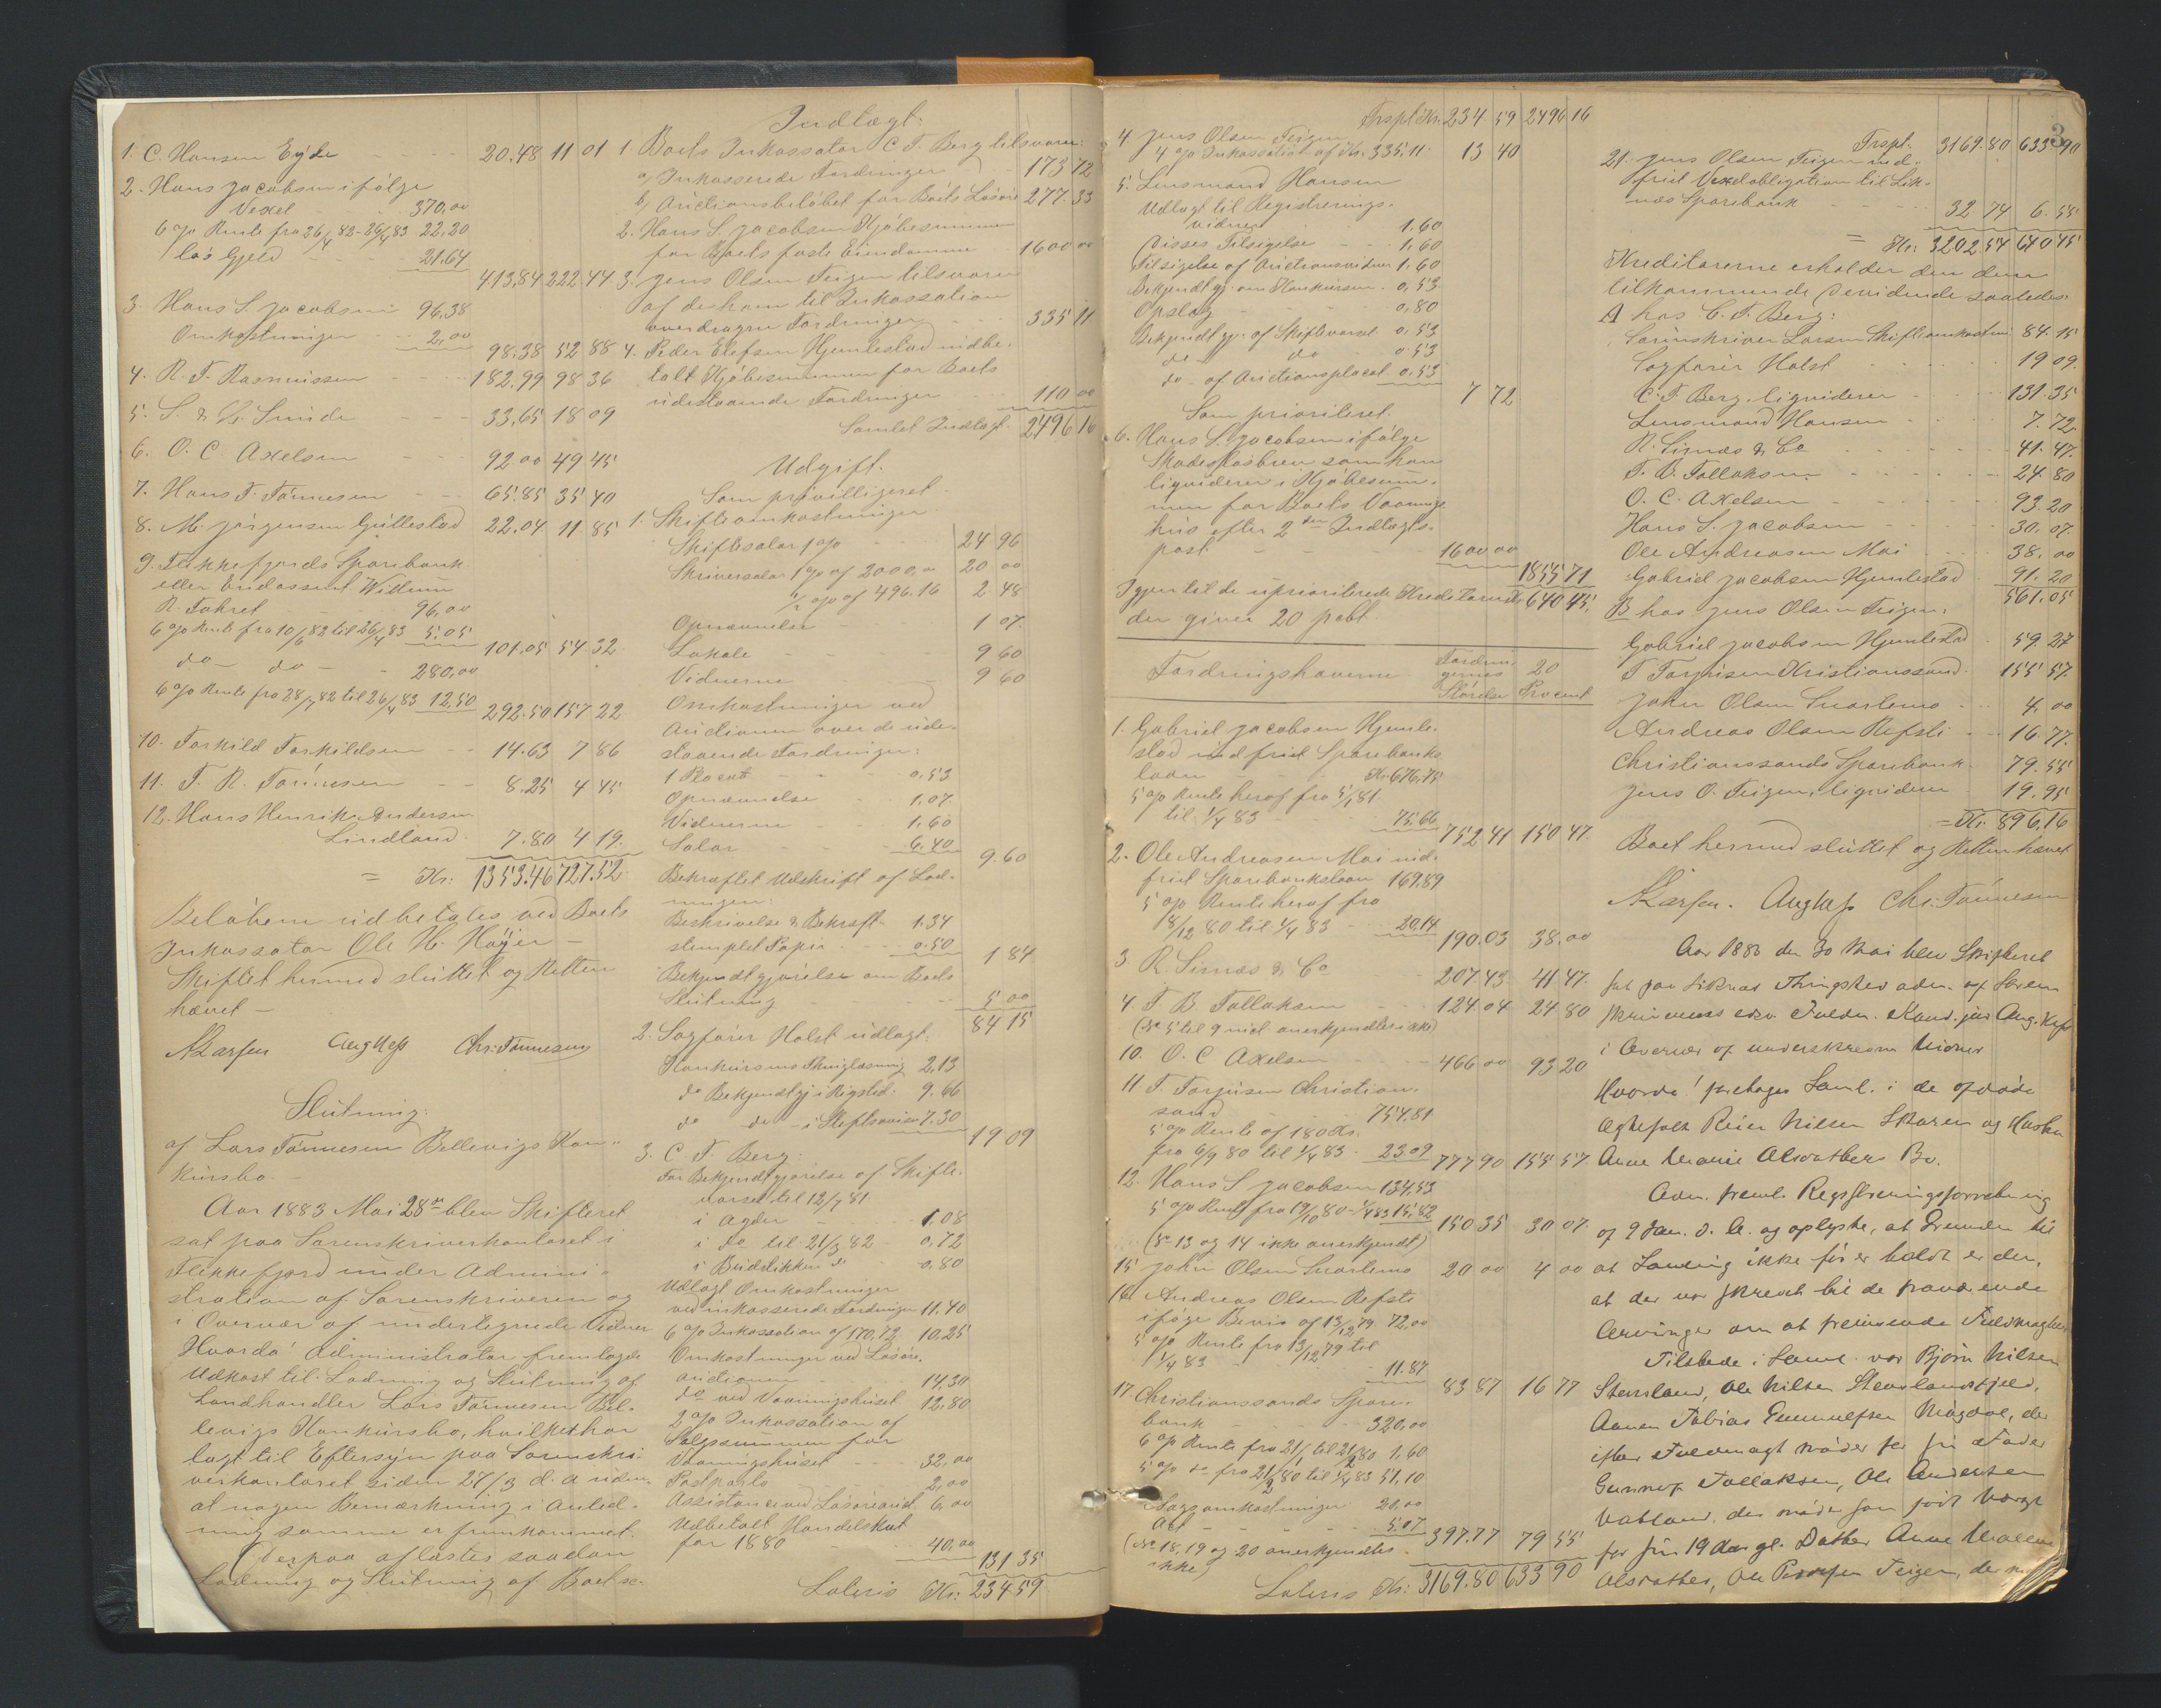 1. C. Hansen Eyde 20.48 11 01
2. Hans Jacobsen ifølge
Vexel 370,00
6 % Rente fra 26/4 82 - 26/4 83 22.20
løs Gjeld 21.64
413,84 222.44
3. Hans S. Jacobsen 96,38
Omkostninger 2,00
98.38 52 88
4. R. F. Rasmussen 182.99 98 36
5. S. & L. Sunde 33,65 18 09
6. O. C. Axelsen 92 00 49 45
7. Hans T. Tønnesen 65.85 35 40
8. M. Jørgensen Gullestad 22.04 11 85
9. Flekkefjords Sparebank
eller Endossent Wittrum
R. Fahret 96,00
6 % Rente fra 10/6 82 til 26/4 83 5.05
101.05 54 32
do do 280,00
6 % Rente fra 28/7 82 til 26/4 83 12,50
292.50 157 22
10. Torkild Torkildsen 14.63 7 86
11. T. R. Tønnesen 8.25 4 45
12. Hans Henrik Andersen
Lindland 7.80 4 19
= Kr: 1353.46 727.52
Beløbene udbetales ved Boets
Inkassator Ole H. Høyer -
Skiftet hermed sluttet og Retten
hævet -
NLarsen Aug Hess Chr. Tønnesen
Slutning
af Lars Tønnesen Bellevigs Kon-
kursbo. -
Aar 1883 Mai 28de blev Skifteret
sat paa Sorenskriverkontoret i
Flekkefjord under Admini-
stration af Sorenskriveren og
i Overvær af undertegnede Vidner
Hvorda! Administrator fremlagde
Udkast til Lodning og Slutning af
Landhandler Lars Tønnesen Bel-
levigs Konkursbo, hvilket har
lagt til Eftersyn paa Sorenskri-
verkontoret siden 27/3 d. A uden
at nogen Bemærkning i Anled-
ning samme er fremkommet.
Derpaa aflæstes saadan
Lodning og Slutning af Boet se-
Indtægt:
1 Boets Inkassator C. F. Berg tilsvarer:
a) Inkasserede Fordringer 173 72
b) Auctionsbeløbet for Boets Løsøre 277.33
2. Hans S. Jacobsen Kjøbesummen
for Boets faste Eiendomme 1600 00
3. Jens Olsen Teigen tilsvarer
af de ham til Inkassation
overdragne Fordringer 335 11
4. Peder Elefsen Hjemlestad indbe-
talt Kjøbesummen for Boets
udestaaende Fordringer 110 00
Samlet Indtægt. 2496 16
Udgift.
Som privilligeret
1. Skifteomkostninger
Skiftesalar 1 % 24 96
Skriversalar 1 % af 2000,00 20 00
1/2 % af 496.16 2 48
Opnævnelse 1 07
Lokale 9 60
Vidnerne 9 60
Omkostninger ved
Auctionen over de ude-
staaende Fordringer:
1 Placat 0,53
Opnævnelse 1,07
Vidnerne 1,60
Salar 6.40
9.60
Bekræftet Udskrift af Lod-
ningen:
Beskrivelse & Bekræft. 1.34
stemplet Papir 0.50
1 84
Bekjendtgjørelse om Boets
Slutning 5 00
84 15
2. Sagfører Holst udlagt:
Konkursens Thinglæsning 2,13
do Bekjendtgj i Rigstid. 9.66
do do - i Stiftsavisen 7.30
19 09
3. C. F. Berg:
For Bekjendtgjørelse af Skifte-
varsel til 12/7 81
i Agder 1,08
i do til 21/3 82 0,72
i Budstikken do 0,80
Udlagt Omkostninger
ved inkasserede Fordringer 11.40
6 % Inkassation af 170,72 10.25
Omkostninger ved Løsøre-
auctionen 14,30
do ved Vaaningshuset 12,80
2 % Inkassation af
Salgssummen for
Vaaningshuset 32,00
Postporto 2,00
Assistance ved Løsøreauct. 6,00
Udbetalt Handelskat
for 1880 40,00
131 35
Lateris Kr: 234 59
Trspt Kr. 234 59 2496 16
4 Jens Olsen Teigen
4 % Inkassation af Kr. 335.11 13 40
5. Lensmand Hansen
Udlagt til Registrerings-
vidner 1.60
Disses Tilsigelse 1,60
Tilsigelse af Auctionsvidner 1,60
Bekjendtgj. om Konkursen 0,53
Opslag 0,80
Bekjendtgj. af Skiftevarsel 0.53
do do 0.53
do - af Auctionsplacat 0.53
7 72
Som prioriteret.
6. Hans S. Jacobsen ifølge
Skadesløsbrev som han
liqviderer i Kjøbesum-
men for Boets Vaanings-
hus efter 2den Indtægts-
post 1600 00
1855 71
Igjen til de uprioriterede Kreditorer Kr 640 45
der giver 20 pCt.
Fordringshaverne Fordrin-
gernes Størrelse 20 Procent
1. Gabriel Jacobsen Hjemle-
stad indfriet Sparebanks
laan Kr. 676,75
5 % Rente heraf fra 5/1 81
til 1/4 83 75.66
752 41 150 47
2. Ole Andreasen Moi ind-
friet Sparebankslaan 169.89
5 % Rente heraf fra
18/12 80 til 1/4 83 20,14
190.03 38.00
3 R. Sirnæs & Co 207.43 41 47
4 T B Tollaksen 124.04 24 80
(No 5 til 9 incl. anerkjendtes ikke)
10. O. C Axelsen 466 00 93 20
11 T. Torjusen Christian-
sand 754.81
5 % Rente af 180 Kr.
fra 6/9 80 til 1/4 83 23.09
777 90 155 57
12. Hans S Jacobsen 134,53
5 % Rente fra 19/10 80 - 1/4 83 15.82
150 35 30 07
(No 13 og 14 ikke anerkjendt)
15 John Olsen Svartemo 20 00 4 00
16 Andreas Olsen Refsti
ifølge Bevis af 13/12 79 72,00
5 % Rente fra 13/12 79 til
1/4 83 11.87
83 87 16 77
17. Christianssands Spare-
bank 320,00
6 % Rente fra 21/1 til 21/2 80 1,60
5 % do fra 21/2 80 til 1/4 83 51,10
Sagsomkostninger 20,00
Alt 5.07
397.77 79 55
(No 18, 19 og 20 anerkjendtes
ikke)
Lateris Kr: 3169.80 633 90
3
Trspt. 3169.80 633 90
21. Jens Olsen Teigen ind-
friet Vexelobligation til Lik-
næs Sparebank 32 74 6.55
= Kr: 3202.54 640 45
Kreditorerne erholder den dem
tilkommende Devidende saaledes:
A hos C. F. Berg:
Sorenskriver Larsen Skifteomkostn. 84.15
Sagfører Holst 19 09
C. F. Berg, liqviderer 131.35
Lensmand Hansen 7.72
R. Sirnæs & Co 41.47
T. B. Tollaksen 24 80
O. C. Axelsen 93.20
Hans S. Jacobsen 30.07
Ole Andreasen Moi 38.00
Gabriel Jacobsen Hjemlestad 91.20
561.05
B hos Jens Olsen Teigen:
Gabriel Jacobsen Hjemlestad 59.27
T Torjusen Kristianssand 155 57
John Olsen Svartemo 4,00
Andreas Olsen Refsti 16.77
Christianssands Sparebank 79.55
Jens O. Teigen, liqviderer 19.95
= Kr 896,16
Boet hermed sluttet og Retten hævet
NLarsen. Aug Hess Chr. Tønnesen
Aar 1883 den 30 Mai blev Skifteret
sat paa Liknæs Thingsted adm. af Soren-
skriverens edsv. Fuldm. Kand. jur Aug. Hess
i Overvær af underskrevne Vidner
Hvorda! foretages Saml. i de afdøde
Ægtefolk Reier Nilsen Skaren og Hustru
Anne Marie Olsdatters Bo.
Adm. freml. Registreringsforretning
af 9 Jan. d. A. og oplyste, at Grunden til
at Samling ikke før er holdt er den,
at der var skrevet til de fraværende
Arvinger om at fremsende Fuldmagter
Tilstede i Saml. var Bjørn Nilsen
Stensland, Ole Nilsen Stenslandskjeld,
Aanen Tobias Gunnulfsen Mygdal, der
efter Fuldmagt møder for sin Fader
Gunnuf Tollaksen, Ole Andersen
Vatland, der møder som født Værge
for sin 19 Aar gl. Datter Anne Malene
Olsdatter, Ole Teigen, der